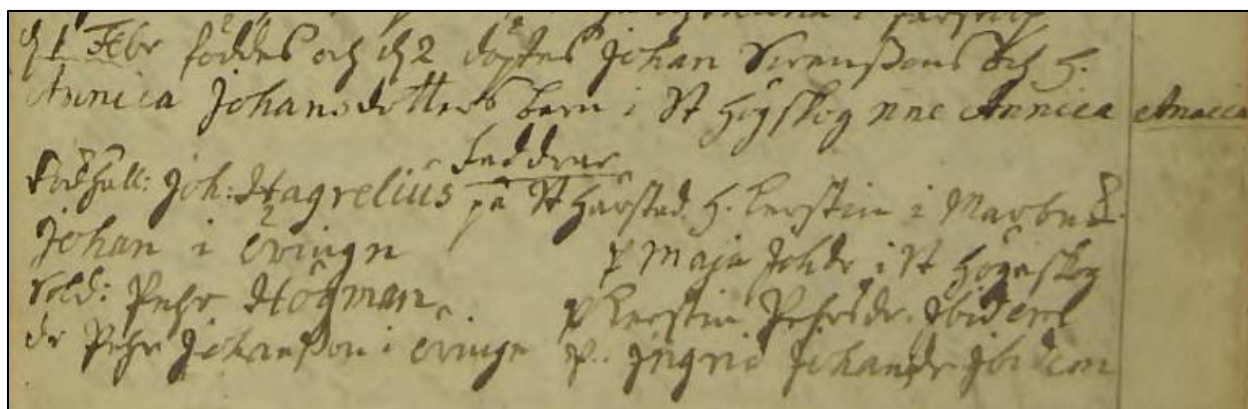 d 1 Febr föddes och d 2 döptes Johan Svenßons och h.
Annica Johansdotters barn i St Högskog nne Annica
Annica
Faddrar
Joh: Hagrelius på St Harstad. h. Kerstin i
Johan i
p Maja Johdr i St Högskog
Sold: Pehr Högman
p Kerstin Pehrsdr. Ibidem
dr Pehr Johanßon i
p. Ingrid Johansdr Ibidem